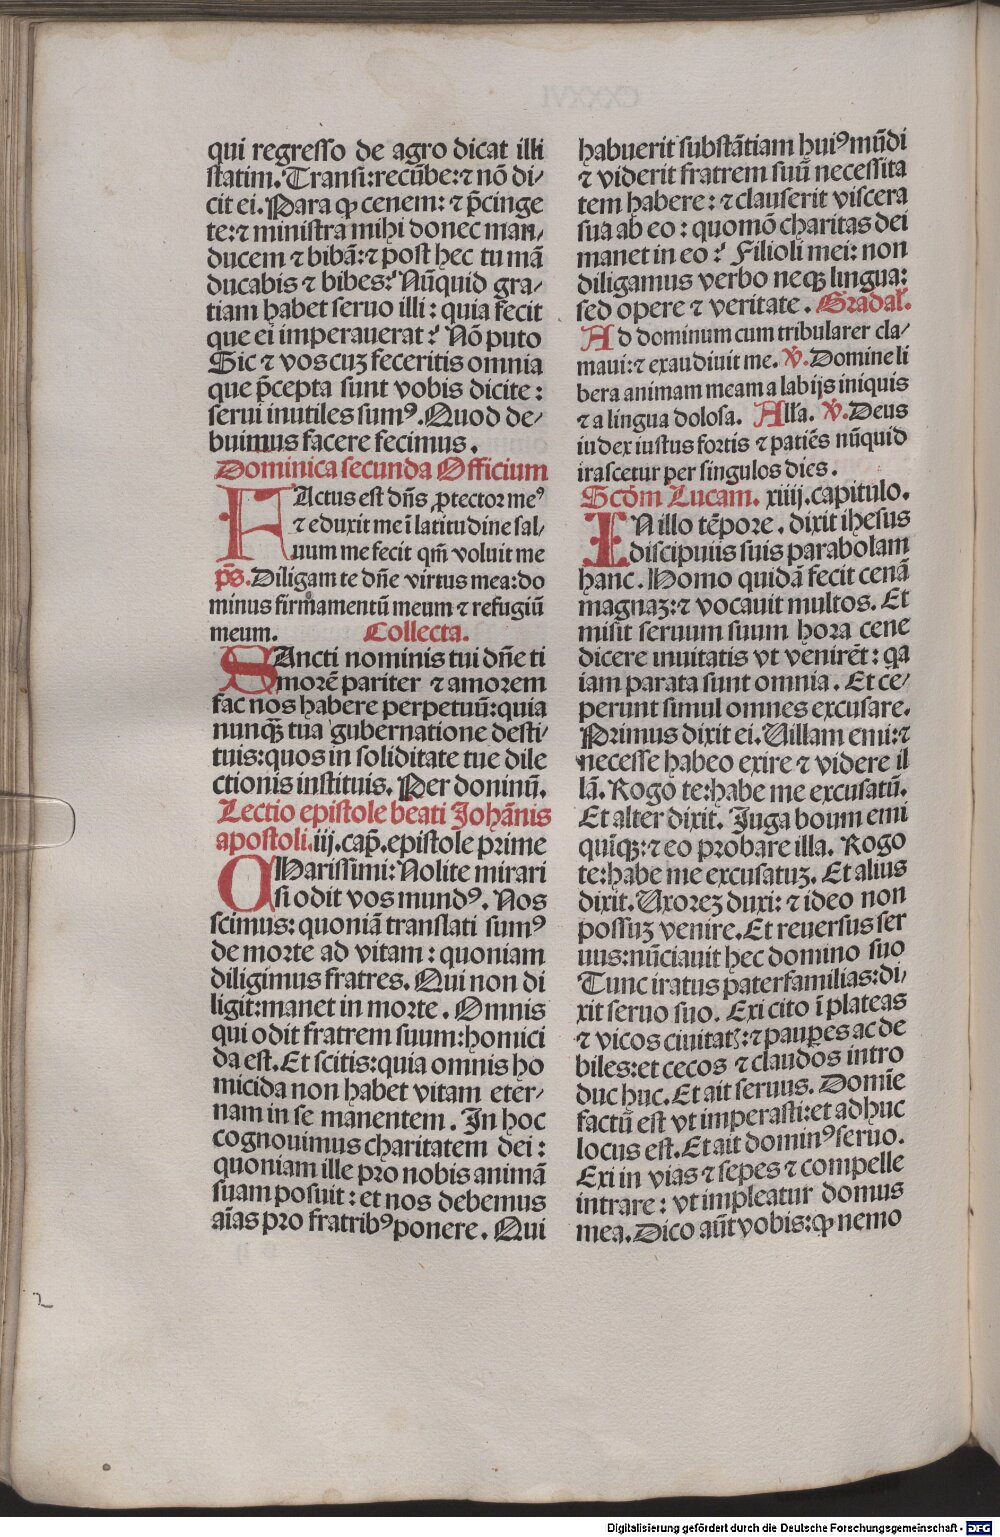 qui regresso de agro dicat illi
statim. Transi: recūbe: ⁊ nō di/
cit ei. Para qꝫ cenem: ⁊ p̄cinge
te: ⁊ ministra mihi donec man/
ducem ⁊ bibā: ⁊ post hec tu mā
ducabis ⁊ bibes? Nūquid gra/
tiam habet seruo illi: quia fecit
que ei imperauerat? Nō puto
Sic ⁊ vos cuꝫ feceritis omnia
que p̄cepta sunt vobis dicite:
serui inutiles sumꝰ. Quod de/
buimus facere fecimus.
Dominica secunda Officium
FActus est dn̄s ꝓtector meꝰ
⁊ eduxit me ī latitudine sal/
uum me fecit qm̄ voluit me
p̄s. Diligam te dn̄e virtus mea: do
minus firmamentū meum ⁊ refugiū
meum. Collecta.
SAncti nominis tui dn̄e ti
morē pariter ⁊ amorem
fac nos habere perpetuū: quia
nunqꝫ̄ tua gubernatione desti/
tuis: quos in soliditate tue dile
ctionis instituis. Per dominū.
Lectio epistole beati Johānis
apostoli. iij. cap̄. epistole prime
CHarissimi: Nolite mirari
si odit vos mundꝰ. Nos
scimus: quoniā translati sumꝰ
de morte ad vitam: quoniam
diligimus fratres. Qui non di
ligit: manet in morte. Omnis
qui odit fratrem suum: homici
da est. Et scitis: quia omnis ho
micida non habet vitam eter/
nam in se manentem. In hoc
cognouimus charitatem dei:
quoniam ille pro nobis animā
suam posuit: et nos debemus
aīas pro fratribꝰ ponere. Qui
habuerit substātiam huiꝰ mūdi
⁊ viderit fratrem suū necessita
tem habere: ⁊ clauserit viscera
sua ab eo: quomō charitas dei
manet in eo? Filioli mei: non
diligamus verbo neqꝫ lingua:
sed opere ⁊ veritate. Gradal̄.
Ad dominum cum tribularer cla/
maui: ⁊ exaudiuit me. ℣. Domine li
bera animam meam a labijs iniquis
⁊ a lingua dolosa. All̄a. ℣. Deus
iudex iustus fortis ⁊ patiēs nūquid
irascetur per singulos dies.
Scd̄m Lucam. xiiij. capitulo.
IN illo tēpore. dixit ihesus
discipulis suis parabolam
hanc. Homo quidā fecit cenā
magnaꝫ: ⁊ vocauit multos. Et
misit seruum suum hora cene
dicere inuitatis vt venirēt: qꝛ
iam parata sunt omnia. Et ce/
perunt simul omnes excusare.
Primus dixit ei. Uillam emi: ⁊
necesse habeo exire ⁊ videre il
lā. Rogo te: habe me excusatū.
Et alter dixit. Juga boum emi
quīqꝫ: ⁊ eo probare illa. Rogo
te: habe me excusatuꝫ. Et alius
dixit. Uxoreꝫ duxi: ⁊ ideo non
possuꝫ venire. Et reuersus ser
uus: nūciauit hec domino suo
Tunc iratus paterfamilias: di/
xit seruo suo. Exi cito ī plateas
⁊ vicos ciuitatꝭ: ⁊ pauꝑes ac de
biles: et cecos ⁊ claudos intro
duc huc. Et ait seruus. Domīe
factū est vt imperasti: et adhuc
locus est. Et ait dominꝰ seruo.
Exi in vias ⁊ sepes ⁊ compelle
intrare: vt impleatur domus
mea. Dico aūt vobis: qꝫ nemo
Digitalisierung gefördert durch die Deutsche Forschungsgemeinschaft - DFG